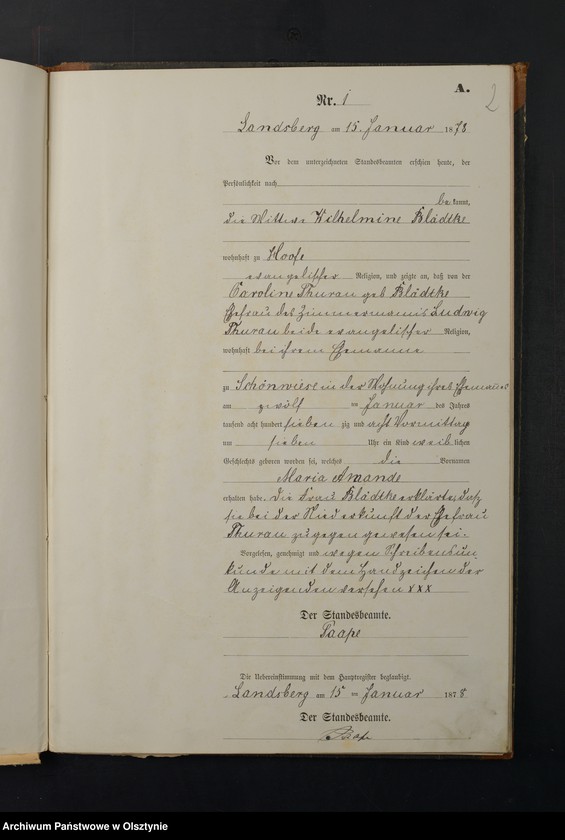 A.
2
Nr. 1
Landsberg am 15. Januar 1878
Vor dem unterzeichneten Standesbeamten erschien heute, der
Persönlichkeit nach
bekannt,
die Wittwe Wilhelmine Blädtke
wohnhaft zu Hoofe
evangelischer Religion, und zeigte an, daß von der
Caroline Thurau geb Blädtke
Ehefrau des Zimmermanns Ludwig
Thurau beide evangelischer Religion,
wohnhaft bei ihrem Ehemanne
zu Schönwiese in der Wohnung ihres Ehemanes
am zwölf ten Januar des Jahres
tausend acht hundert sieben zig und acht Vormittag
um sieben Uhr ein Kind weib lichen
Geschlechts geboren worden sei, welches die Vornamen
Maria Amande
erhalten habe. Die Frau Blädtke erklärte, daß
sie bei der Niederkunft der Ehefrau
Thurau zugegen gewesen sei.
Vorgelesen, genehmigt und wegen Schreibensun
kunde mit dem Handzeichen der
Anzeigenden versehen xxx
Der Standesbeamte.
Paape
Die Uebereinstimmung mit dem Hauptregister beglaubigt.
Landsberg am 15 ten Januar 1878
Der Standesbeamte.
Paape
Archiwum Państwowe w Olsztynie